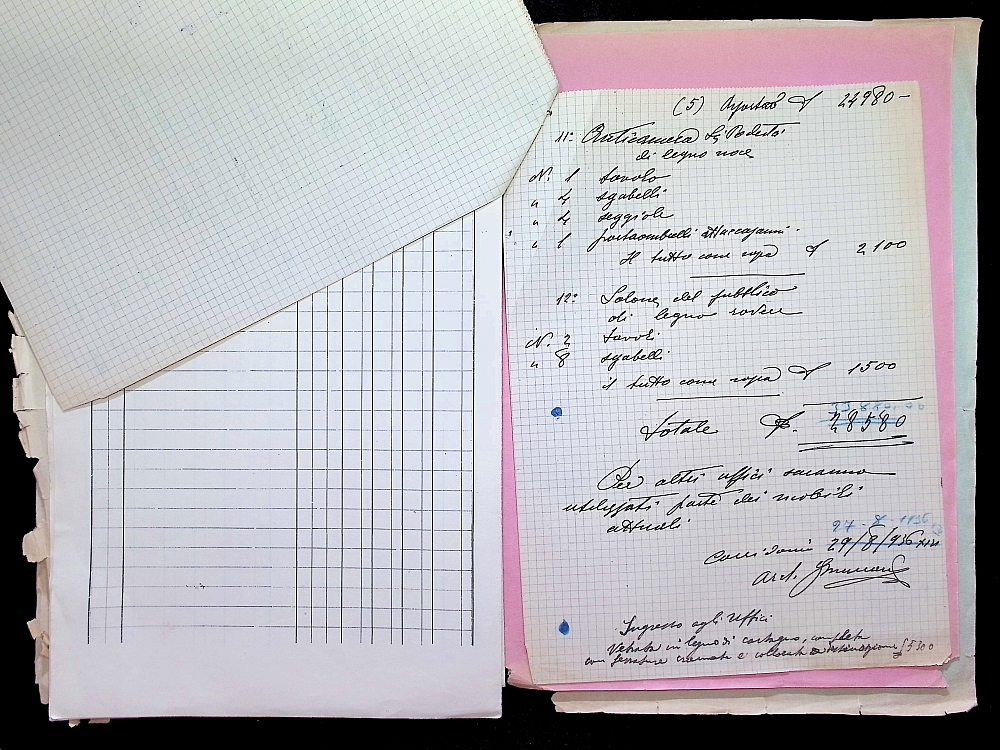 (5) Riporto £ 24980-
11° Anticamera Sig. Podestà
di legno noce
N. 1 tavolo
" 4 sgabelli
" 4 seggiole
" 1 portaombrelli attaccapanni.
Il tutto come sopra £ 2100
12° Salone del pubblico
di legno rovere
N. 2 tavoli
" 8 sgabelli
il tutto come sopra £ 1500
Totale £. 28580
Per altri uffici saranno
utilizzati parte dei mobili
attuali
27-8-1936
Corridonia 29/8/936 XIV
Arch.
Ingresso agli Uffici
Vetrata in legno di castagno, completa
con serrature cromate e collocata a destinazione £ 5300